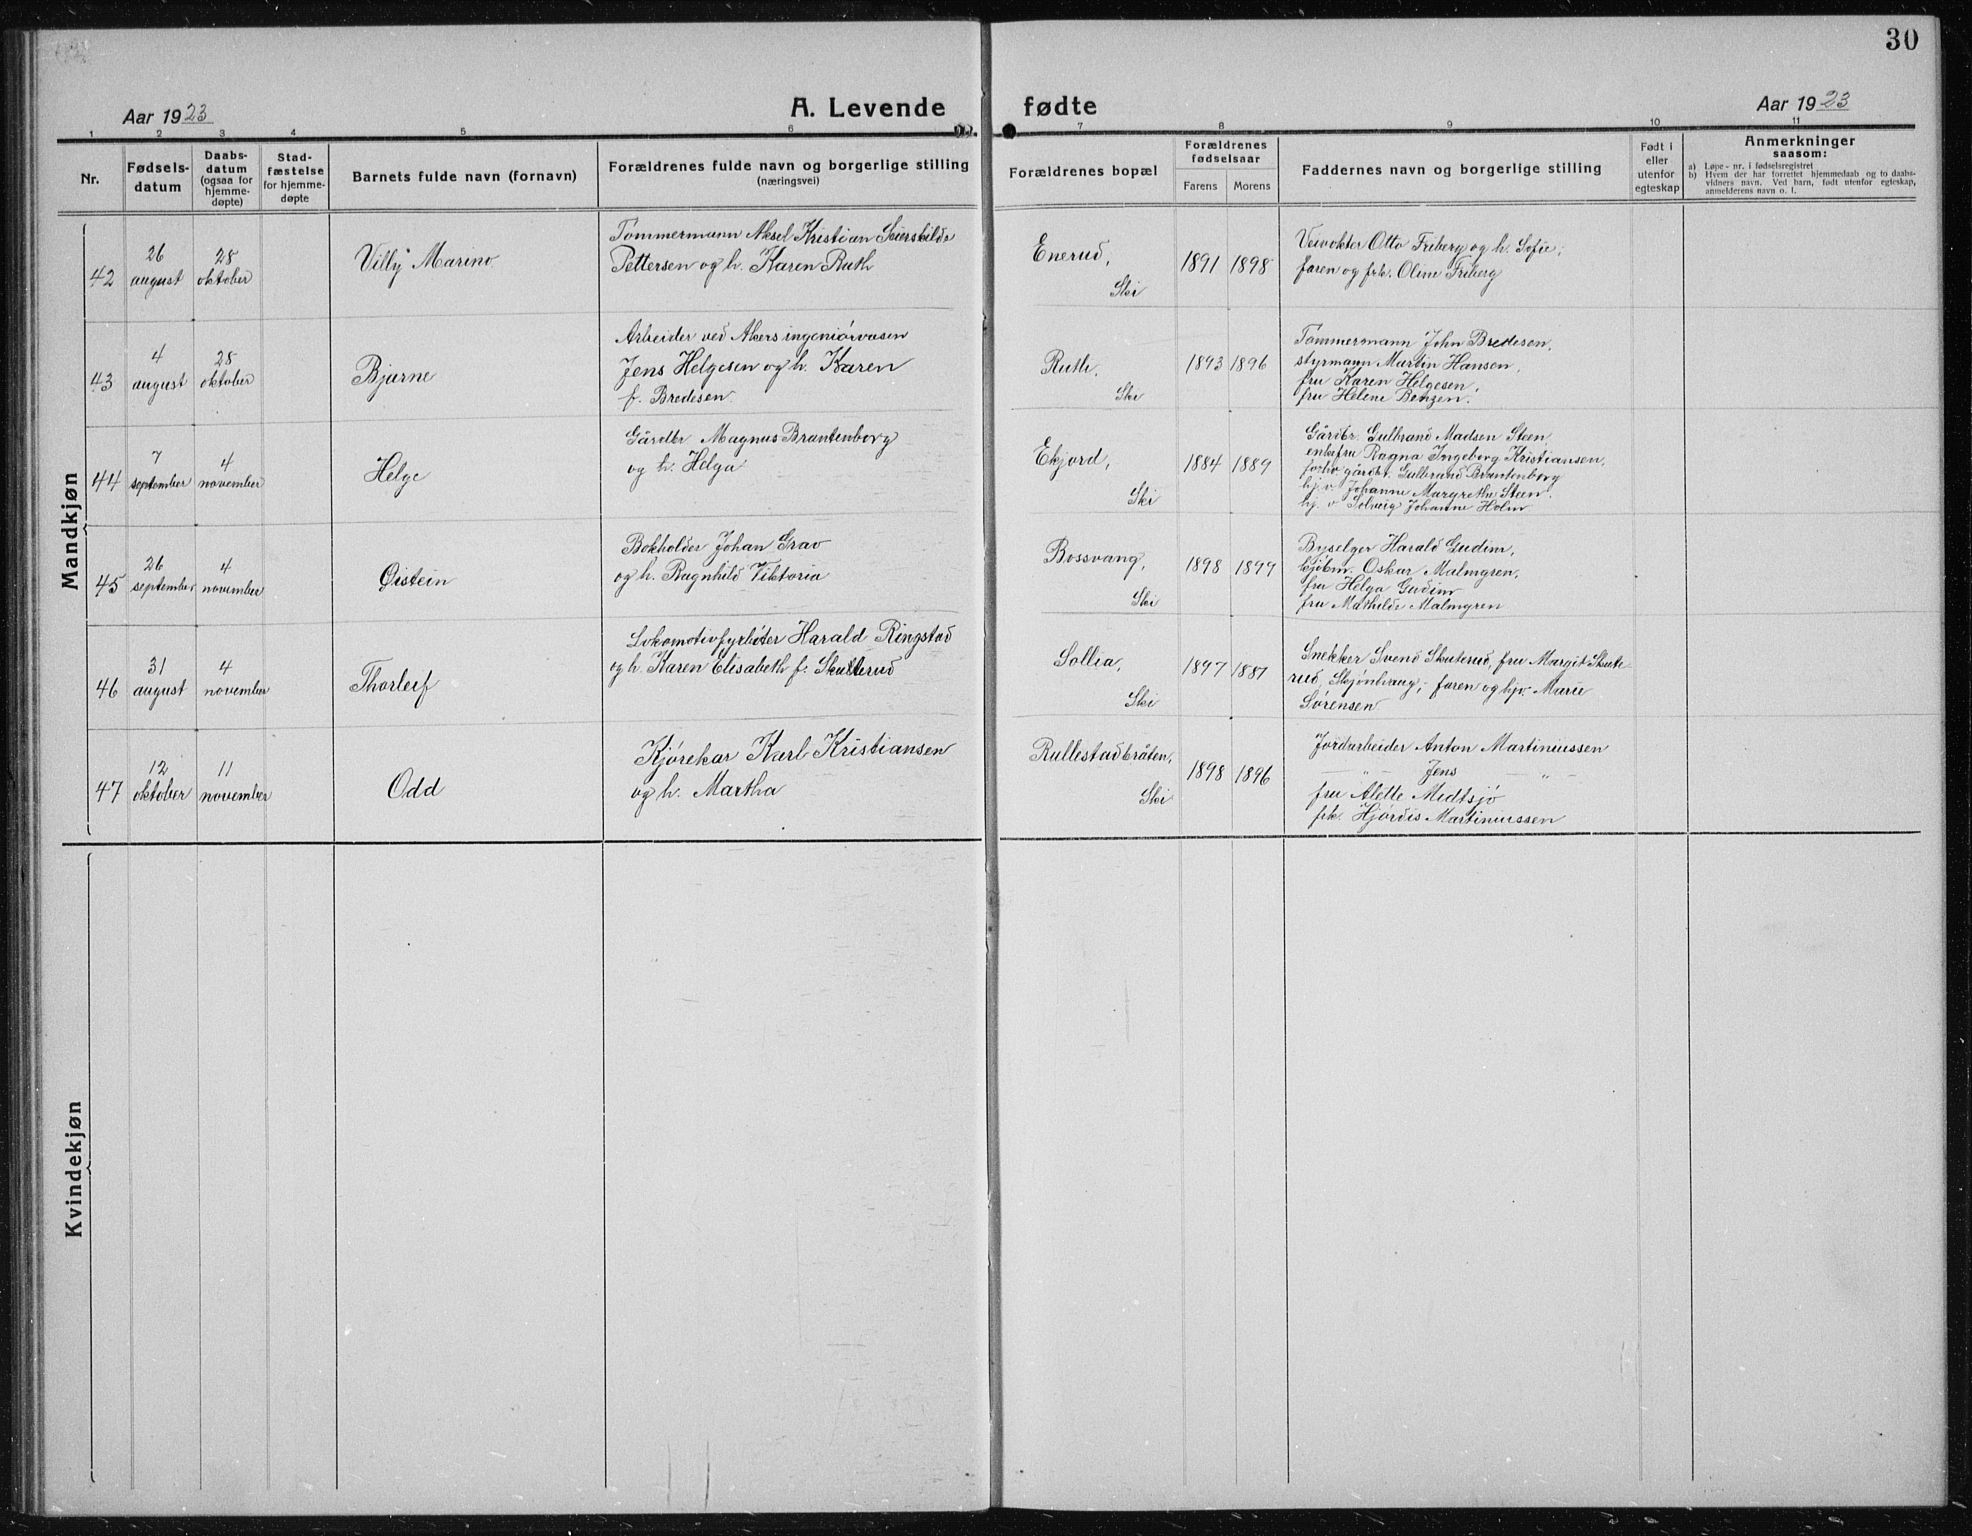 30
Aar 1923
A. Levende fødte
Aar 1923
1 2 3 4 5 6 7 8 9 10 11
Nr.
Fødsels-
datum
Daabs-
datum
(ogsaa for
hjemme-
døpte)
Stad-
fæstelse
for hjemme-
døpte
Barnets fulde navn (fornavn)
Forældrenes fulde navn og borgerlige stilling
(næringsvei)
Forældrenes bopæl
Forældrenes
fødselsaar
Farens Morens
Faddernes navn og borgerlige stilling
Født i
eller
utenfor
egteskap
Anmerkninger
saasom:
a) Løpe-nr. i fødselsregistret
b) Hvem der har forrettet hjemmedaab og to daabs-
vidners navn. Ved barn, født utenfor egteskap,
anmelderens navn o. l.
Mandkjøn
42
26
august
28
oktober
Villy Marino
Tømmermann Aksel Kristian Seierskilde
Pettersen og h. Karen Ruth
Enerud,
Ski
1891 1898
Veivokter Otto Friberg og h. Sofie;
faren og frk. Oline Friberg
43
4
august
28
oktober
Bjarne
Arbeider ved Akers ingeniørvæsen
Jens Helgesen og h. Karen
f. Bredesen.
Ruth,
Ski
1893 1896
Tømmermann John Bredesen,
styrmann Martin Hansen,
fru Karen Helgesen,
fru Helene Benzen.
44
7
september
4
november
Helge
Gårdbr Magnus Brantenborg
og h. Helga
Ekjord,
Ski
1884 1889
Gårdbr. Gulbrand Madsen Steen
enkefru Ragna Ingeborg Kristiansen,
forhv gårdbr. Gulbrand Brantenborg
hj. v. Johanne Margrethe Steen.
hj. v Solveig Johanne Holm
45
26
september
4
november
Øistein
Bokholder Johan Grav
og h. Ragnhild Viktoria
Bossvang,
Ski
1898 1899
Byselger Harald Gudim,
kjøbm. Oskar Malmgren,
fru Helga Gudim
fru Mathilde Malmgren
46
31
august
4
november
Thorleif
Lokomotivfyrbøter Harald Ringstad
og h. Karen Elisabeth f. Skutterud
Sollia,
Ski
1897 1887
Snekker Svend Skuterud, fru Margit Skute
rud, Skjønhaug; faren og hjv. Marie
Sørensen
47
12
oktober
11
november
Odd
Kjørekar Karl Kristiansen
og h. Martha
Rullestadbråten,
Ski
1898 1896
Jordarbeider Anton Martinussen
— " — Jens — " —
fru Alette Midtsjø
frk. Hjørdis Martinussen
Kvindekjøn